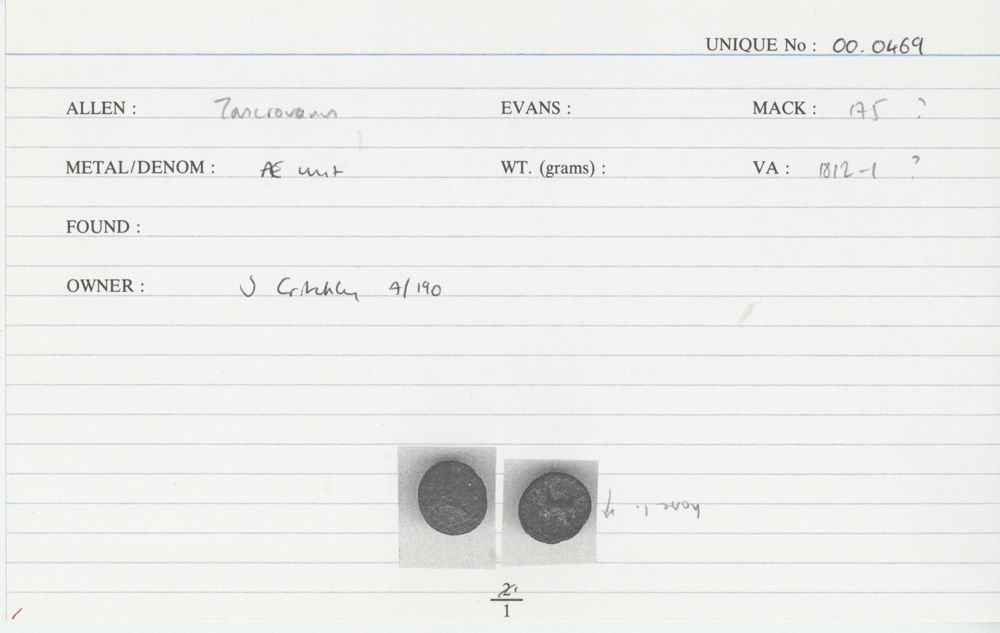 UNIQUE No : 00.0469
ALLEN : Tasciovanus EVANS : MACK : 175 ?
METAL/DENOM : Æ unit WT. (grams) : VA : 1812-1 ?
FOUND :
OWNER : J Critchley A/190
horse l.
2
1